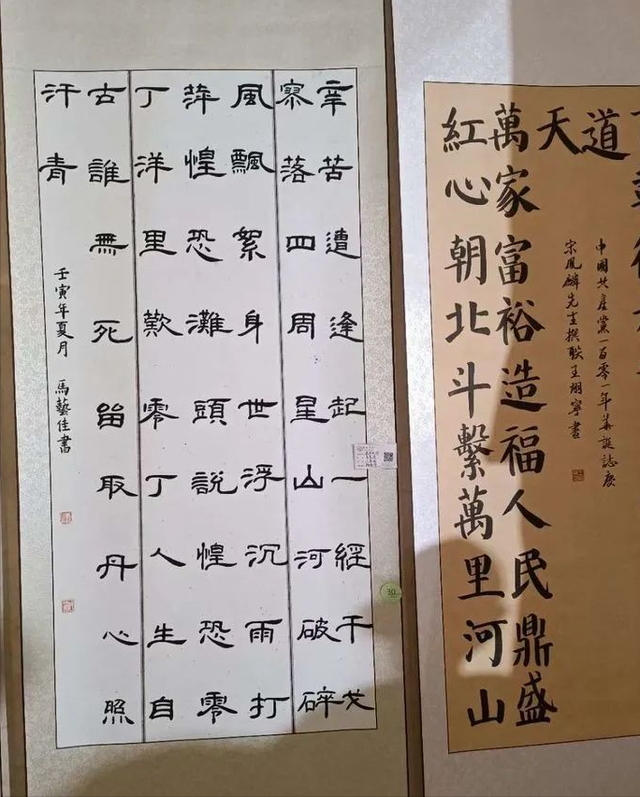 辛苦遭逢起一經干戈
寥落四周星山河破碎
風飄絮身世浮沉雨打
萍惶恐灘頭說惶恐零
丁洋里歎零丁人生自
古誰無死留取丹心照
汗青
壬寅年夏月 馬藝佳書
30
道
天
萬家富裕造福人民鼎盛
紅心朝北斗繫萬里河山
中國共產黨一百零一年華誕誌慶
宋鳳麟先生撰联王翊寧書